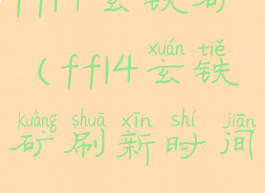 xuán tiě
(ff14玄铁
kuàng shuā xīn shí jiān
矿刷新时间